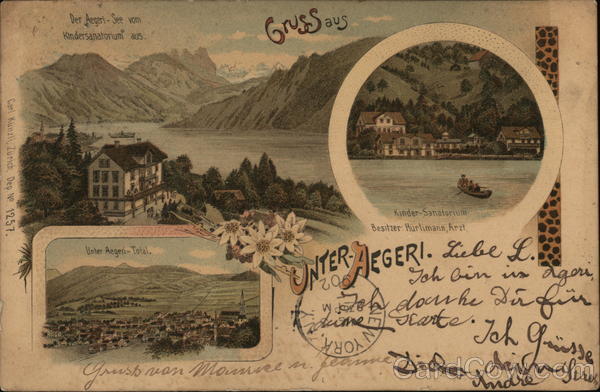 Der Aegeri-See vom
„Kindersanatorium“ aus.
Gruss aus
Carl Künzli, Zürich. Dep. No. 1257.
Kinder-Sanatorium
Besitzer: Hürlimann, Arzt.
Unter Aegeri-Total.
UNTER-AEGERI.
Liebe L.
Ich bin in
Ich danke Dir für
Karte.
Ich Grüsse
NEW YORK
Gruss von Maurice u. Jeanne
André
CardCow.com